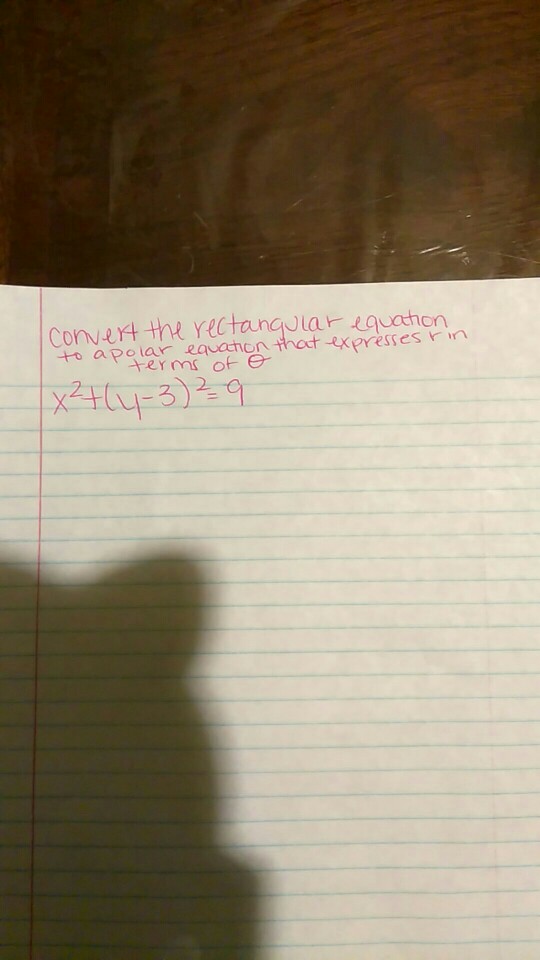 convert the rectangular equation
to a polar equation that expresses r in
terms of θ
x²+(y-3)²=9